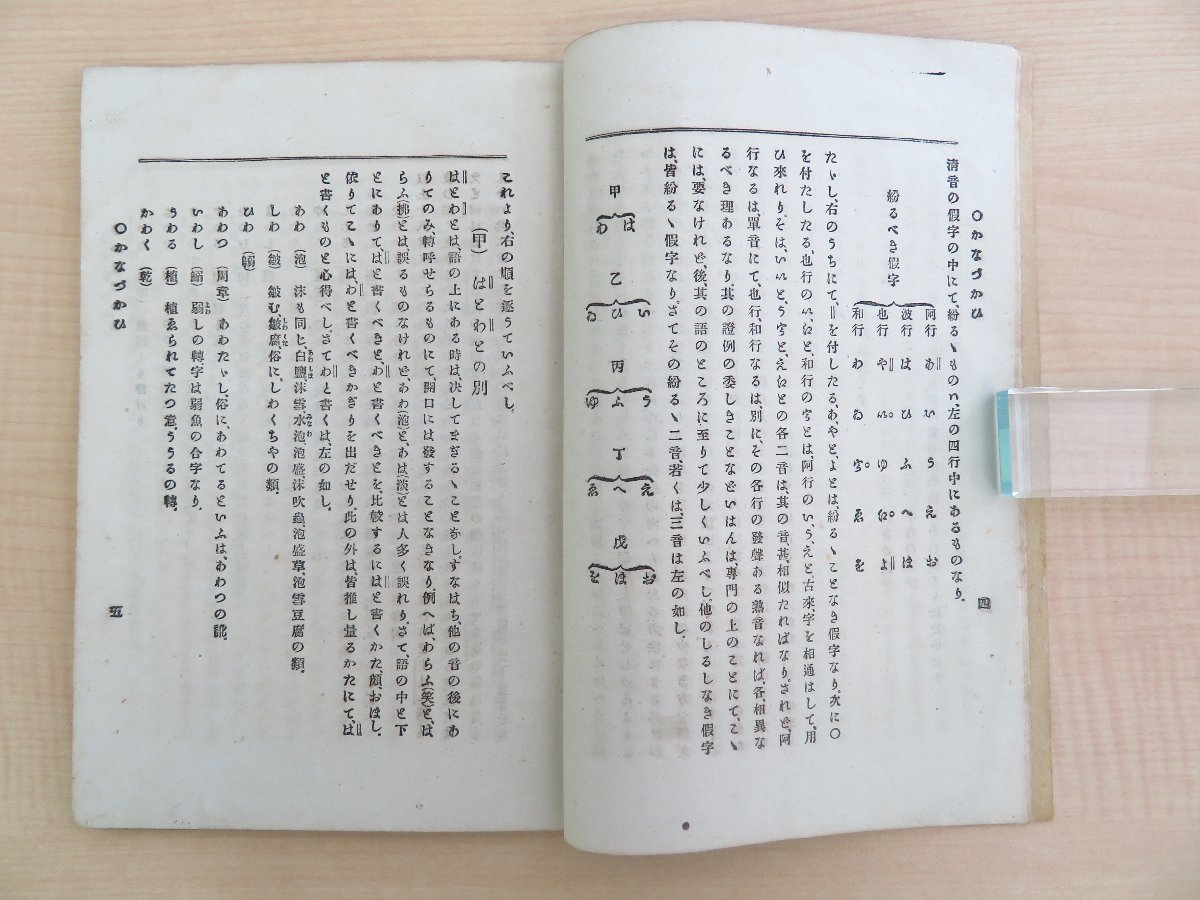 〇かなづかひ
四
清音の假字の中にて、紛るゝものは、左の四行中にあるものなり。
紛るべき假字
阿行 あ い う え お
波行 は ひ ふ へ ほ
也行 や ゆ よ
和行 わ ゐ ゑ を
たゞし、右のうちにて、〢を付したる、あ、や、と、よとは、紛るゝことなき假字なり。次に〇
を付たしたる、也行の
和行の
とは、阿行のい、う、えと古來、字を相通はして、用
ひ來れり。そは、
との各二音は、其の音、甚、相似たればなり。されど、阿
行なるは、單音にて、也行、和行なるは、別に、その各行の發聲ある熟音なれば、各相異な
るべき理あるなり。其の證例の委しきことなどいはんは、專門の上のことにて、こゝ
には、要なけれど、後、其の語のところに至りて少しくいふべし。他のしるしなき假字
は、皆紛るゝ假字なり。さてその紛るゝ二音、若くは、三音は左の如し。
甲 は わ
乙 い ひ ゐ
丙 う ふ ゆ
丁 え へ ゑ
戊 お ほ を
これより、右の順を逐うていふべし。
(甲) はとわとの別
はとわとは、語の上にある時は、决してまぎるゝことなし。すなはち、他の音の後にあ
りてのみ、轉呼せらるものにて、開口には發することなきなり。例へば、わらふ(笑)と、は
らふ(拂)とは、誤るものなけれど、あわ(泡)と、あは(淡)とは人多く誤れり。さて、語の中と下
とにありて、はと書くべきと、わと書くべきとを比較するに、はと書くかた、頗、おほし。
依りてこゝには、わと書くべきかぎりを出だせり。此の外は、皆推し量るかたにて、は
と書くものと心得べし。さてわと書くは、左の如し。
あわ (泡) 沫も同じ、白鹽沫雪、水泡、泡盛沫吹蟲、泡盛草、泡雪豆腐の類。
しわ (皺) 皺む、皺腐、俗に、しわくちやの類。
ひわ (鶸)
あわつ (周章) あわたゞし、俗にあわてるといふは、あわつの訛。
いわし (鰯) 弱しの轉字は弱魚の合字なり。
うわる (植) 植ゑられてたつ意、うゝるの轉。
かわく (乾)
〇かなづかひ
五